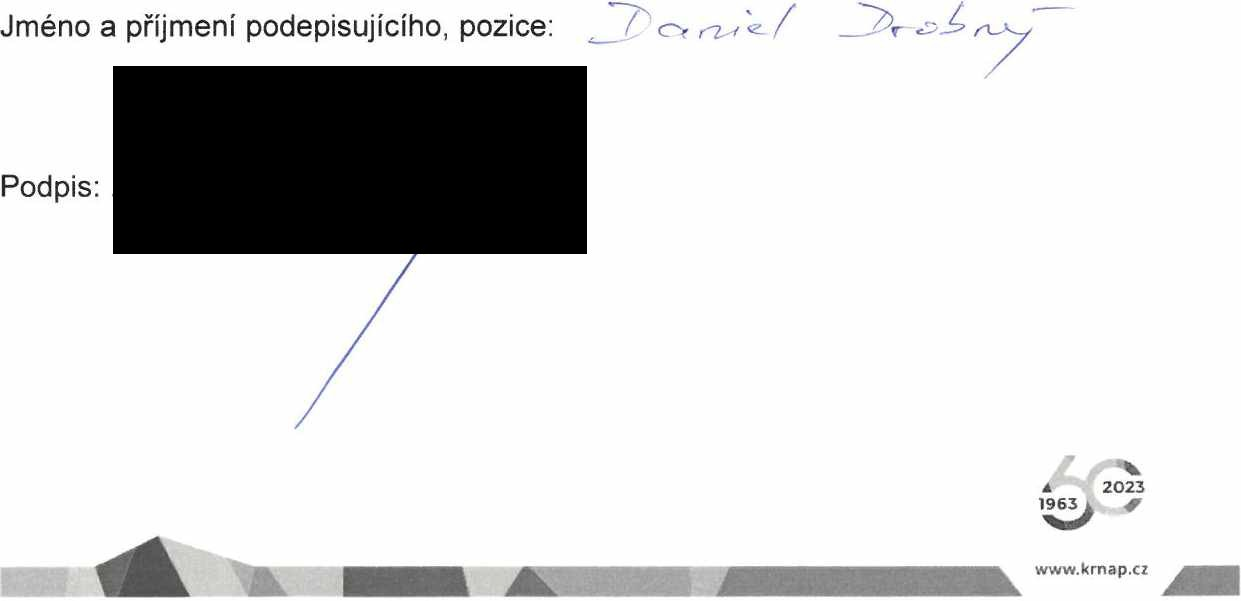 Jméno a příjmení podepisujícího, pozice: Daniel Drobný
Podpis:
1963 2023
www.krnap.cz